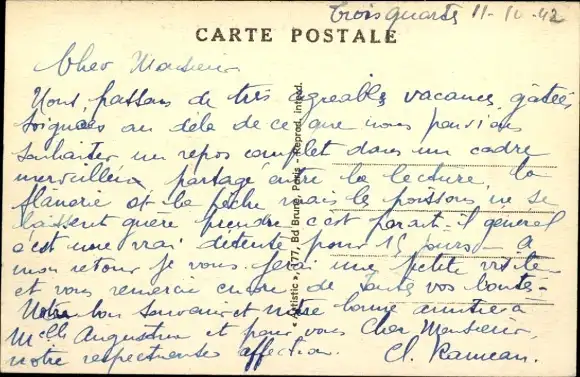 Troisquarts 11-10-42
CARTE POSTALE
Cher Monsieur
Nous passons de très agréables vacances, gâtées,
soignées au delà de ce que nous pouvions
souhaiter un repos complet dans un cadre
merveilleux partagé entre la lecture, la
flânerie et la pêche mais les poissons ne se
laissent guère prendre c'est parait-il général
c'est une vrai détente pour 15 jours - A
mon retour je vous ferai une petite visite
et vous remercierai de toutes vos bontés -
Notre bon souvenir et notre bonne amitié à
Melle Augustine et pour vous Cher Monsieur,
notre respectueuse affection. Cl. Rameau.
« Artistic », 177, Bd Brune, Paris - Reprod. interd.